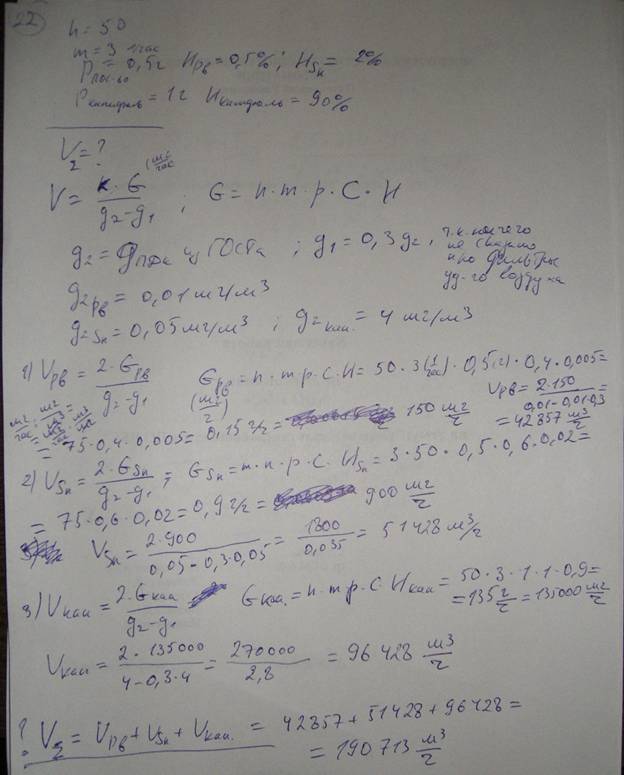 22
n = 50
m = 3 1/час
P = 0,5г H_Pb = 0,5%; H_Sn = 2%
P_канифоль = 1г H_канифоль = 90%
V_Σ = ?
V = k·G / g2-g1 (м3/час); G = n·m·p·C·H
g2 = из ГОСТа; g1 = 0,3 g2, т.к. ничего не сказано про фильтры воздуха
g2Pb = 0,01 мг/м3
g2Sn = 0,05 мг/м3; g2кан. = 4 мг/м3
1) V_Pb = 2·G_Pb / g2-g1 G_Pb = n·m·p·C·H = 50·3(1/час)·0,5(г)·0,4·0,005 =
= 75·0,4·0,005 = 0,15 г/ч = 150 мг/ч
V_Pb = 2·150 / 0,01-0,01·0,3 = = 42857 м3/ч
2) V_Sn = 2·G_Sn / g2-g1; G_Sn = m·n·p·C·H_Sn = 3·50·0,5·0,6·0,02 =
= 75·0,6·0,02 = 0,9 г/ч = 900 мг/ч
V_Sn = 2·900 / 0,05-0,3·0,05 = 1800 / 0,035 = 51428 м3/ч
3) V_кан = 2·G_кан / g2-g1 G_кан. = n·m·p·C·H_кан = 50·3·1·1·0,9 =
= 135 г/ч = 135000 мг/ч
V_кан = 2·135000 / 4-0,3·4 = 270000 / 2,8 = 96428 м3/ч
? V_Σ = V_Pb + V_Sn + V_кан. = 42857 + 51428 + 96428 =
= 190713 м3/ч